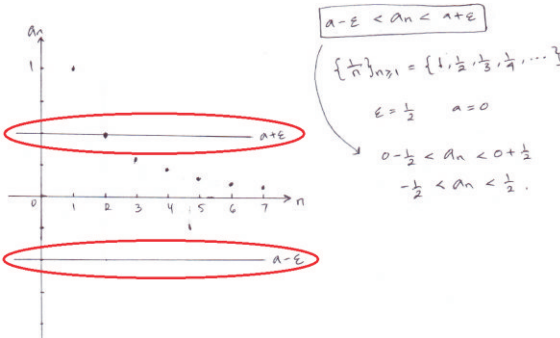 aₙ
1
a+ε
0 1 2 3 4 5 6 7 n
a-ε
a-ε < aₙ < a+ε
{1/n}ₙ≥₁ = {1, 1/2, 1/3, 1/4, ...}
ε = 1/2 a = 0
0 - 1/2 < aₙ < 0 + 1/2
-1/2 < aₙ < 1/2.